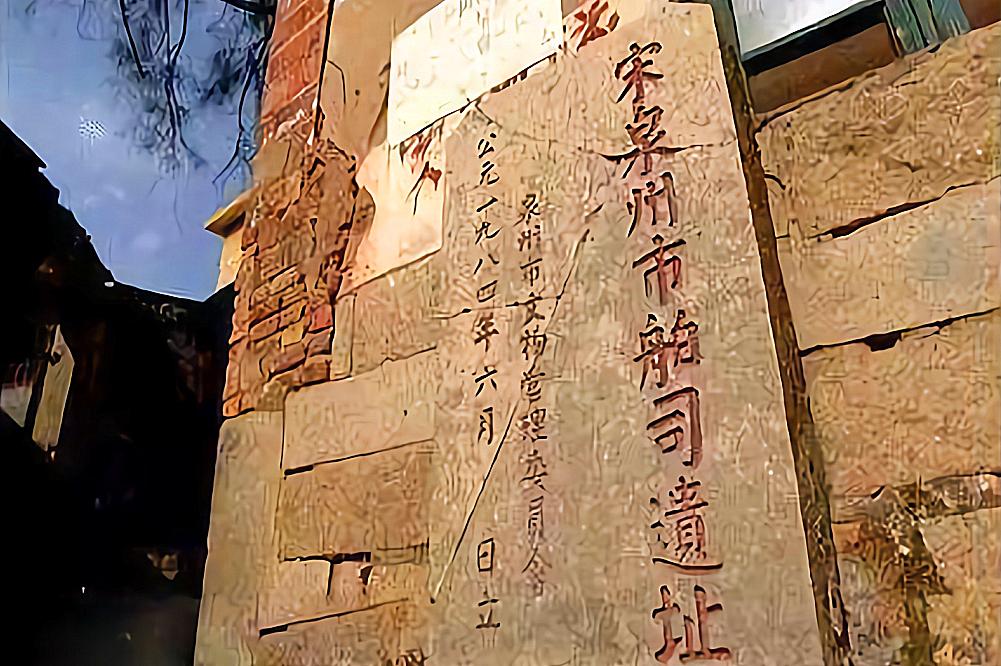 宋泉州市舶司遺址
泉州市文物管理委員会
公元一九八四年六月 日立